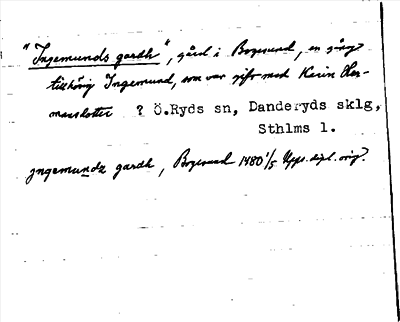 "Ingemunds gardh", gård i Bogesund, en gång
tillhörig Ingemund, som var gift med Karin Her-
mansdotter ? Ö.Ryds sn, Danderyds sklg,
Sthlms l.
yngemundz gardh, Bogesund 1480 1/5 Upps. dipl. orig.